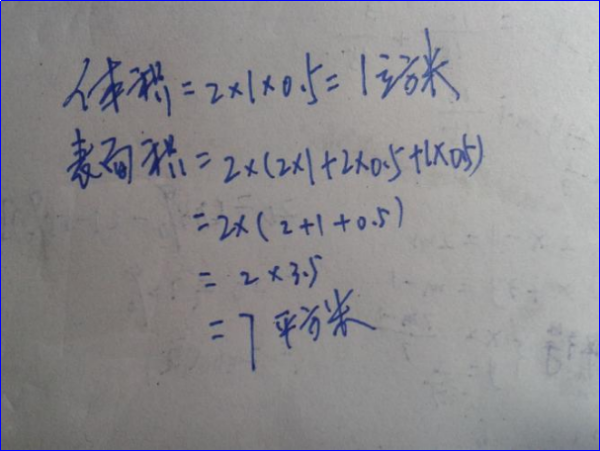 体积=2×1×0.5=1立方米
表面积=2×(2×1+2×0.5+1×0.5)
=2×(2+1+0.5)
=2×3.5
=7平方米